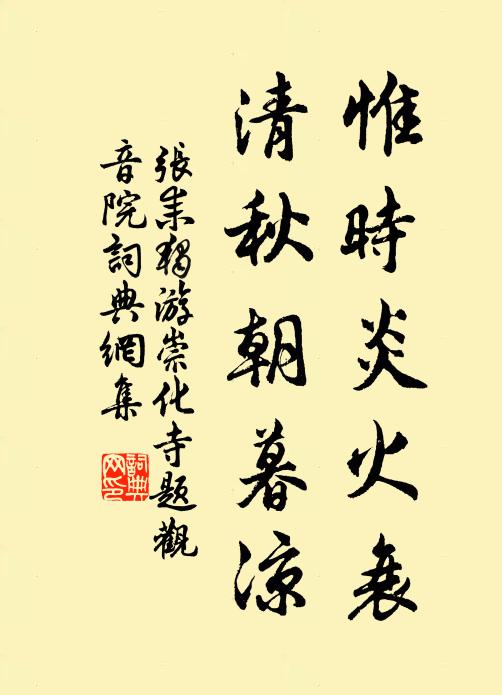 惟時炎火衰
清秋朝暮涼
張耒獨游崇化寺題觀
音院詞典網集
詞典網印